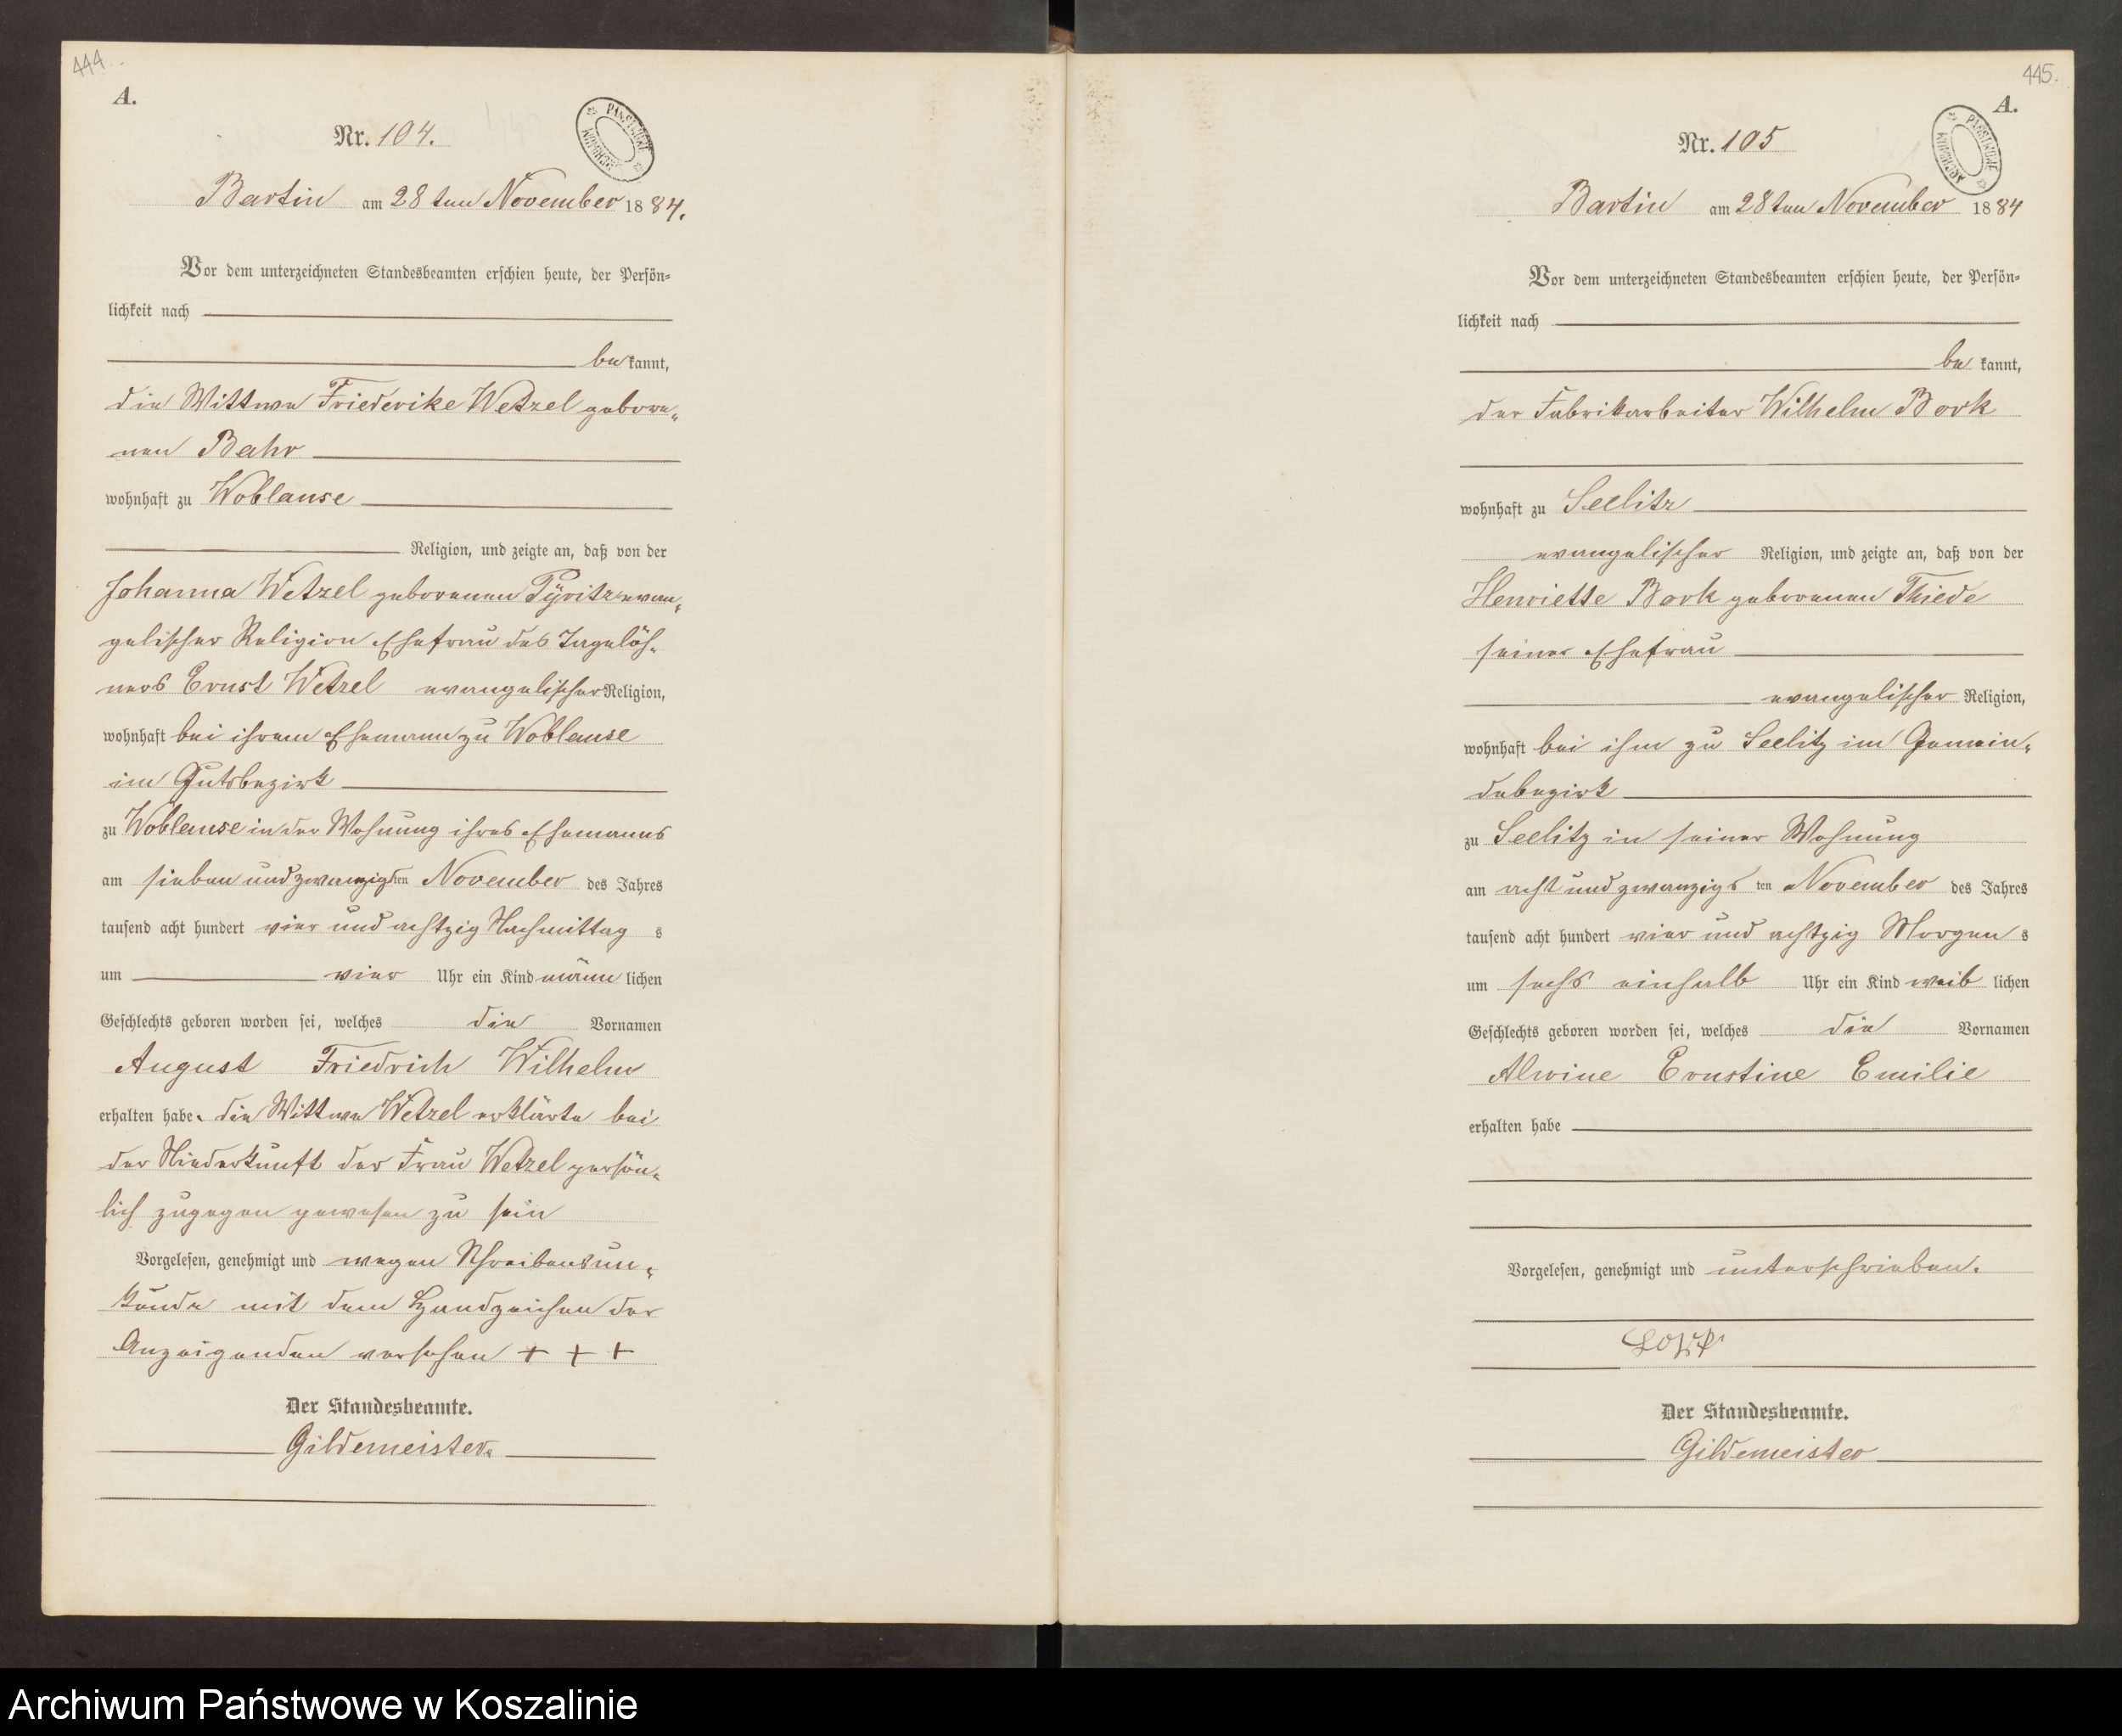 444.
A.
Nr. 104.
Bartin am 28ten November 1884.
Vor dem unterzeichneten Standesbeamten erschien heute, der Persön-
lichkeit nach
bekannt,
die Wittwe Friederike Wetzel gebore-
nen Bahr
wohnhaft zu Woblanse
Religion, und zeigte an, daß von der
Johanna Wetzel geborenen Pÿritz evan-
gelischer Religion Ehefrau des Tagelöh-
ners Ernst Wetzel evangelischer Religion,
wohnhaft bei ihrem Ehemann zu Woblanse
im Gutsbezirk
zu Woblanse in der Wohnung ihres Ehemanns
am sieben und zwanzigsten November des Jahres
tausend acht hundert vier und achtzig Nachmittags
um vier Uhr ein Kind männlichen
Geschlechts geboren worden sei, welches die Vornamen
August Friedrich Wilhelm
erhalten habe. die Wittwe Wetzel erklärte bei
der Niederkunft der Frau Wetzel persön-
lich zugegen gewesen zu sein
Vorgelesen, genehmigt und wegen Schreibensun-
kunde mit dem Handzeichen der
Anzeigenden versehen + + +
Der Standesbeamte.
Gildemeister.
445.
A.
Nr. 105
Bartin am 28ten November 1884
Vor dem unterzeichneten Standesbeamten erschien heute, der Persön-
lichkeit nach
bekannt,
der Fabrikarbeiter Wilhelm Bork
wohnhaft zu Seelitz
evangelischer Religion, und zeigte an, daß von der
Henriette Bork geborenen Thiede
seiner Ehefrau
evangelischer Religion,
wohnhaft bei ihm zu Seelitz im Gemein-
debezirk
zu Seelitz in seiner Wohnung
am acht und zwanzigsten November des Jahres
tausend acht hundert vier und achtzig Morgens
um sechs einhalb Uhr ein Kind weiblichen
Geschlechts geboren worden sei, welches die Vornamen
Alwine Ernstine Emilie
erhalten habe
Vorgelesen, genehmigt und unterschrieben.
Der Standesbeamte.
Gildemeister
Archiwum Państwowe w Koszalinie